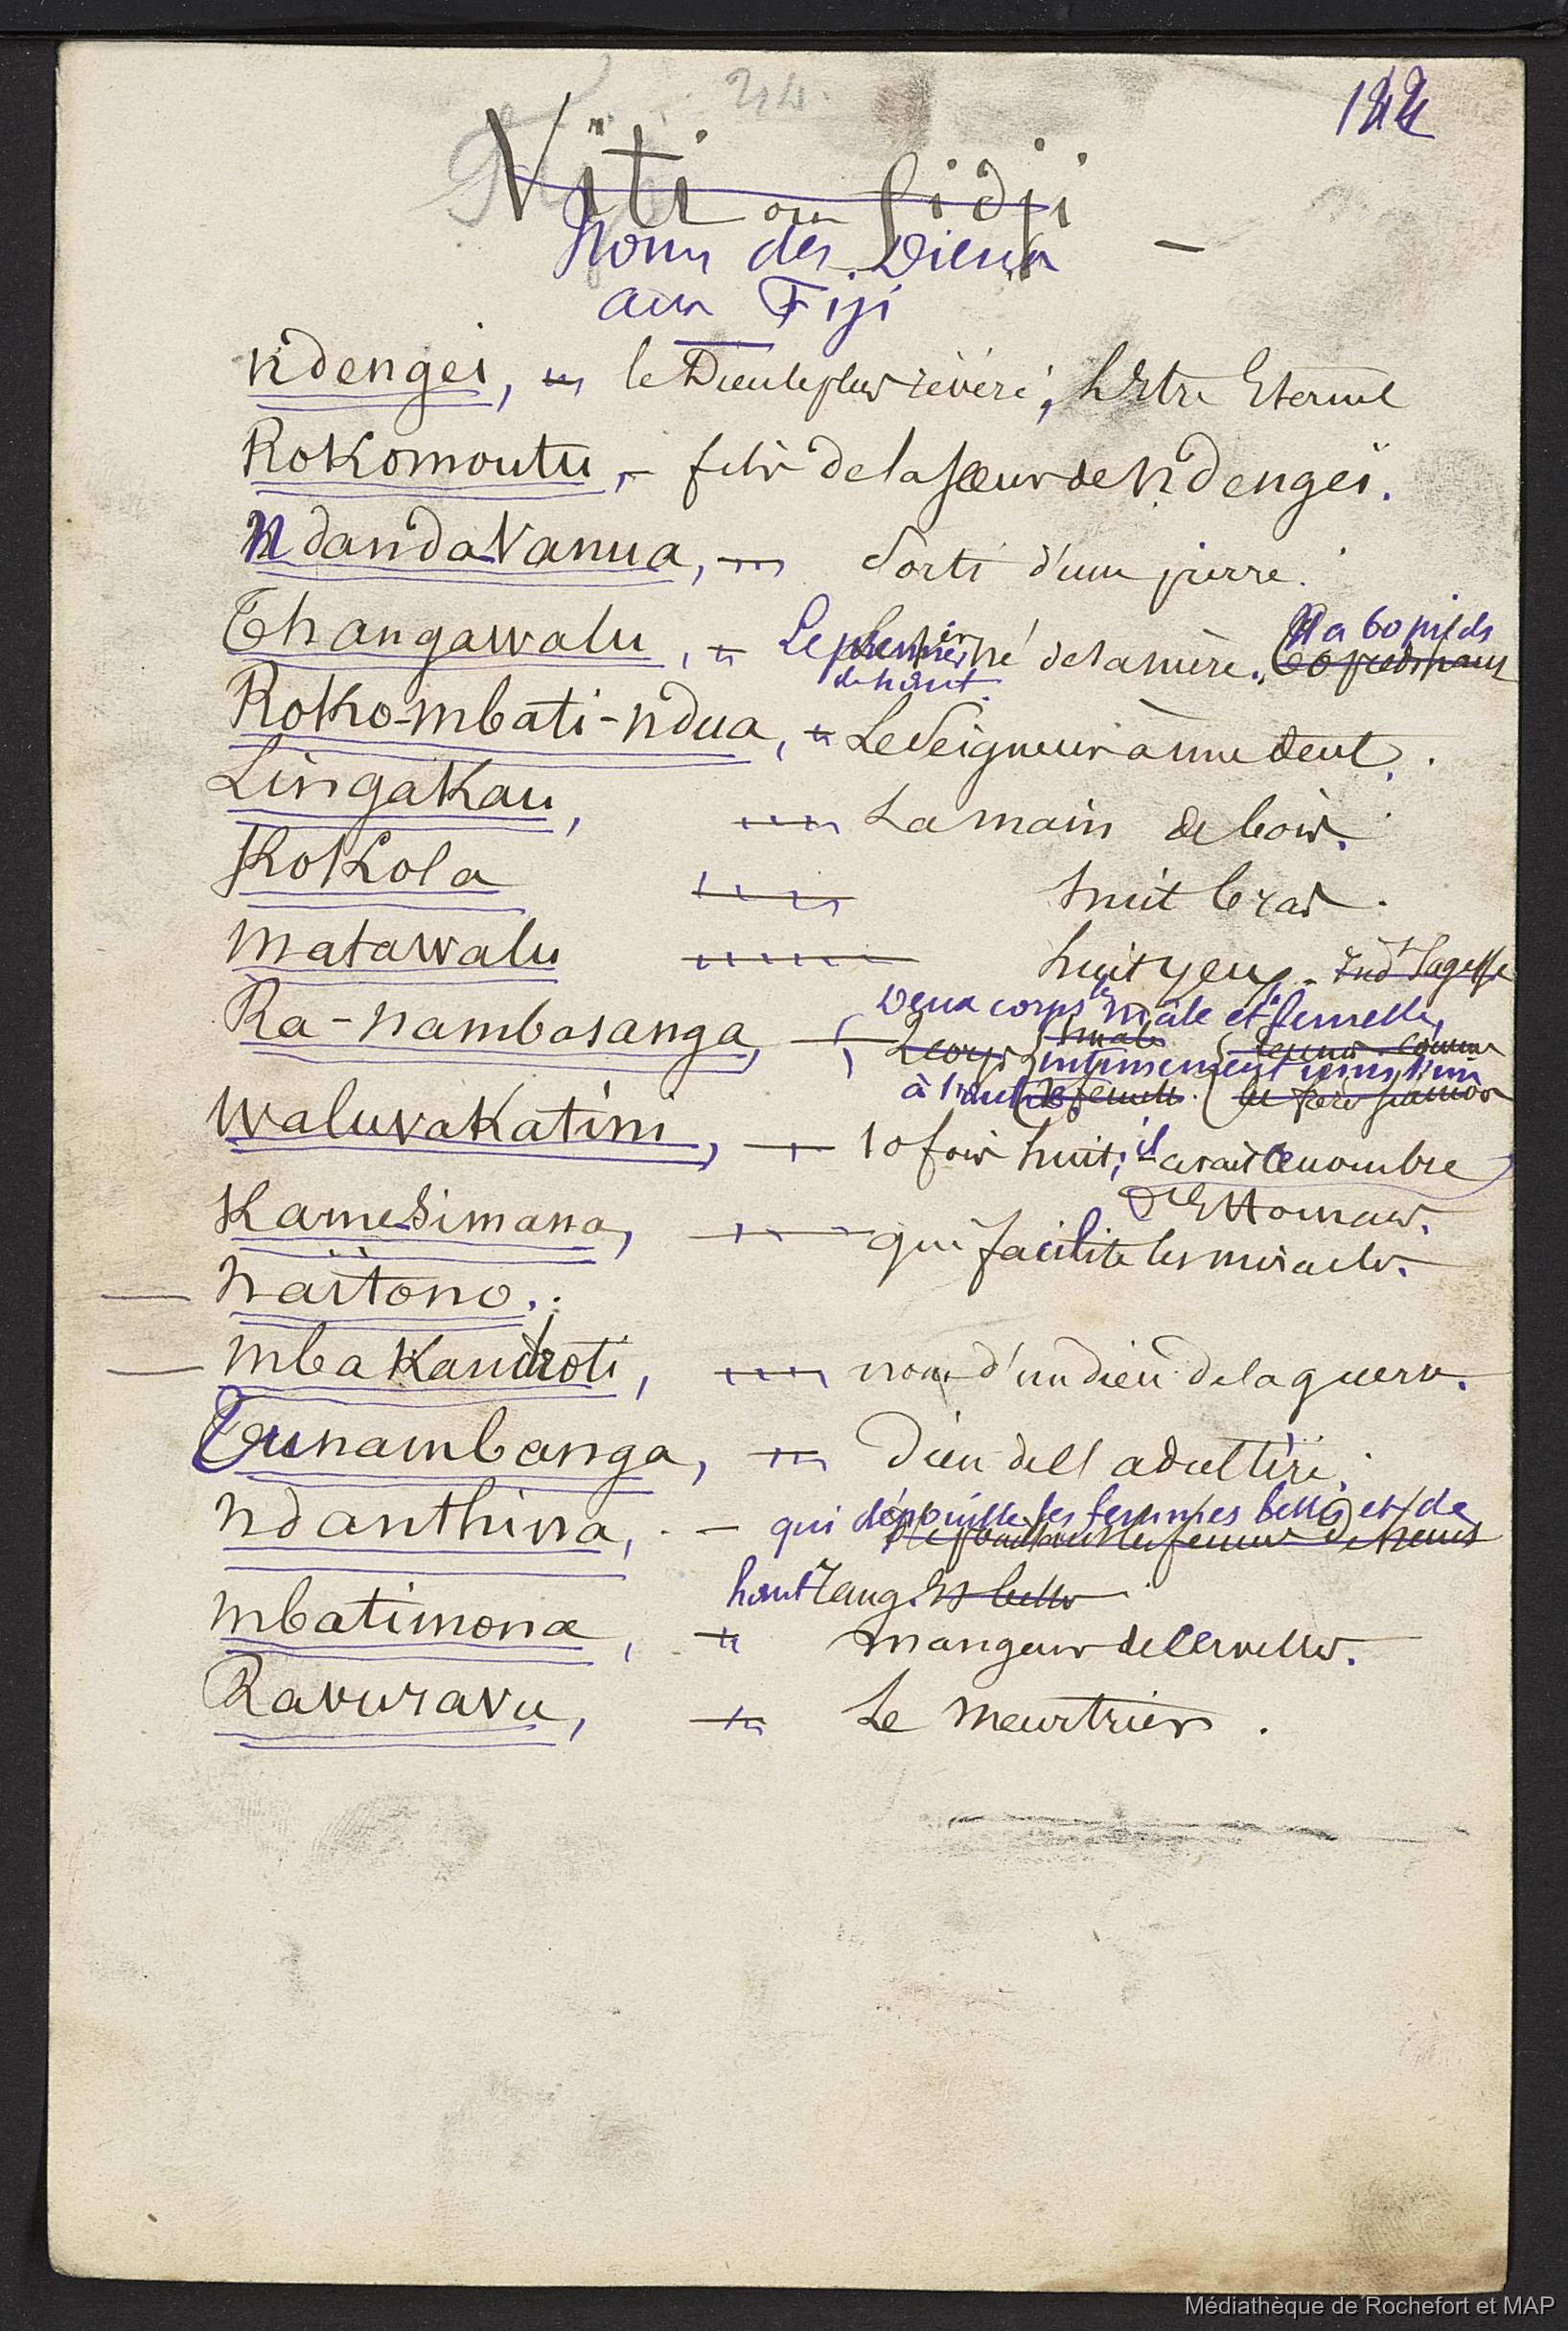 24.
144
Viti ou fidji
Noms des Dieux —
aux Fiji
Ndengei, — le Dieu le plus révéré, L'Etre Eternel
Rokomoutu, — fils de la sœur de Ndengei.
NdandaVanua, — Sorti d'une pierre.
Il a 60 pieds
Thangawalu, — Le premier né de sa mère. 60 pieds haut
de haut.
Roko-mbati-ndua, — Le Seigneur à une dent.
LingaKau, — La main de bois.
KoKola — huit bras.
Matawalu — huit yeux. Ind. Sagesse
Deux corps le mâle et la femelle,
Ra-nambasanga, — 2 corps mâle
intimement unis l'un
à l'autre femelle.
WaluvaKatini, — 10 fois huit; il avait ce nombre
d'Estomacs.
KameSimana, — qui facilite les miracles.
— Naitono.
— MbaKandroti, — nom d'un dieu de la guerre.
Tunambanga, — Dieu de l'adultère.
qui dépouille les femmes belles et de
Ndanthina, —
haut rang. Et belles
Mbatimona, — mangeur de Cervelles.
Ravuravu, — Le Meurtrier.
Médiathèque de Rochefort et MAP